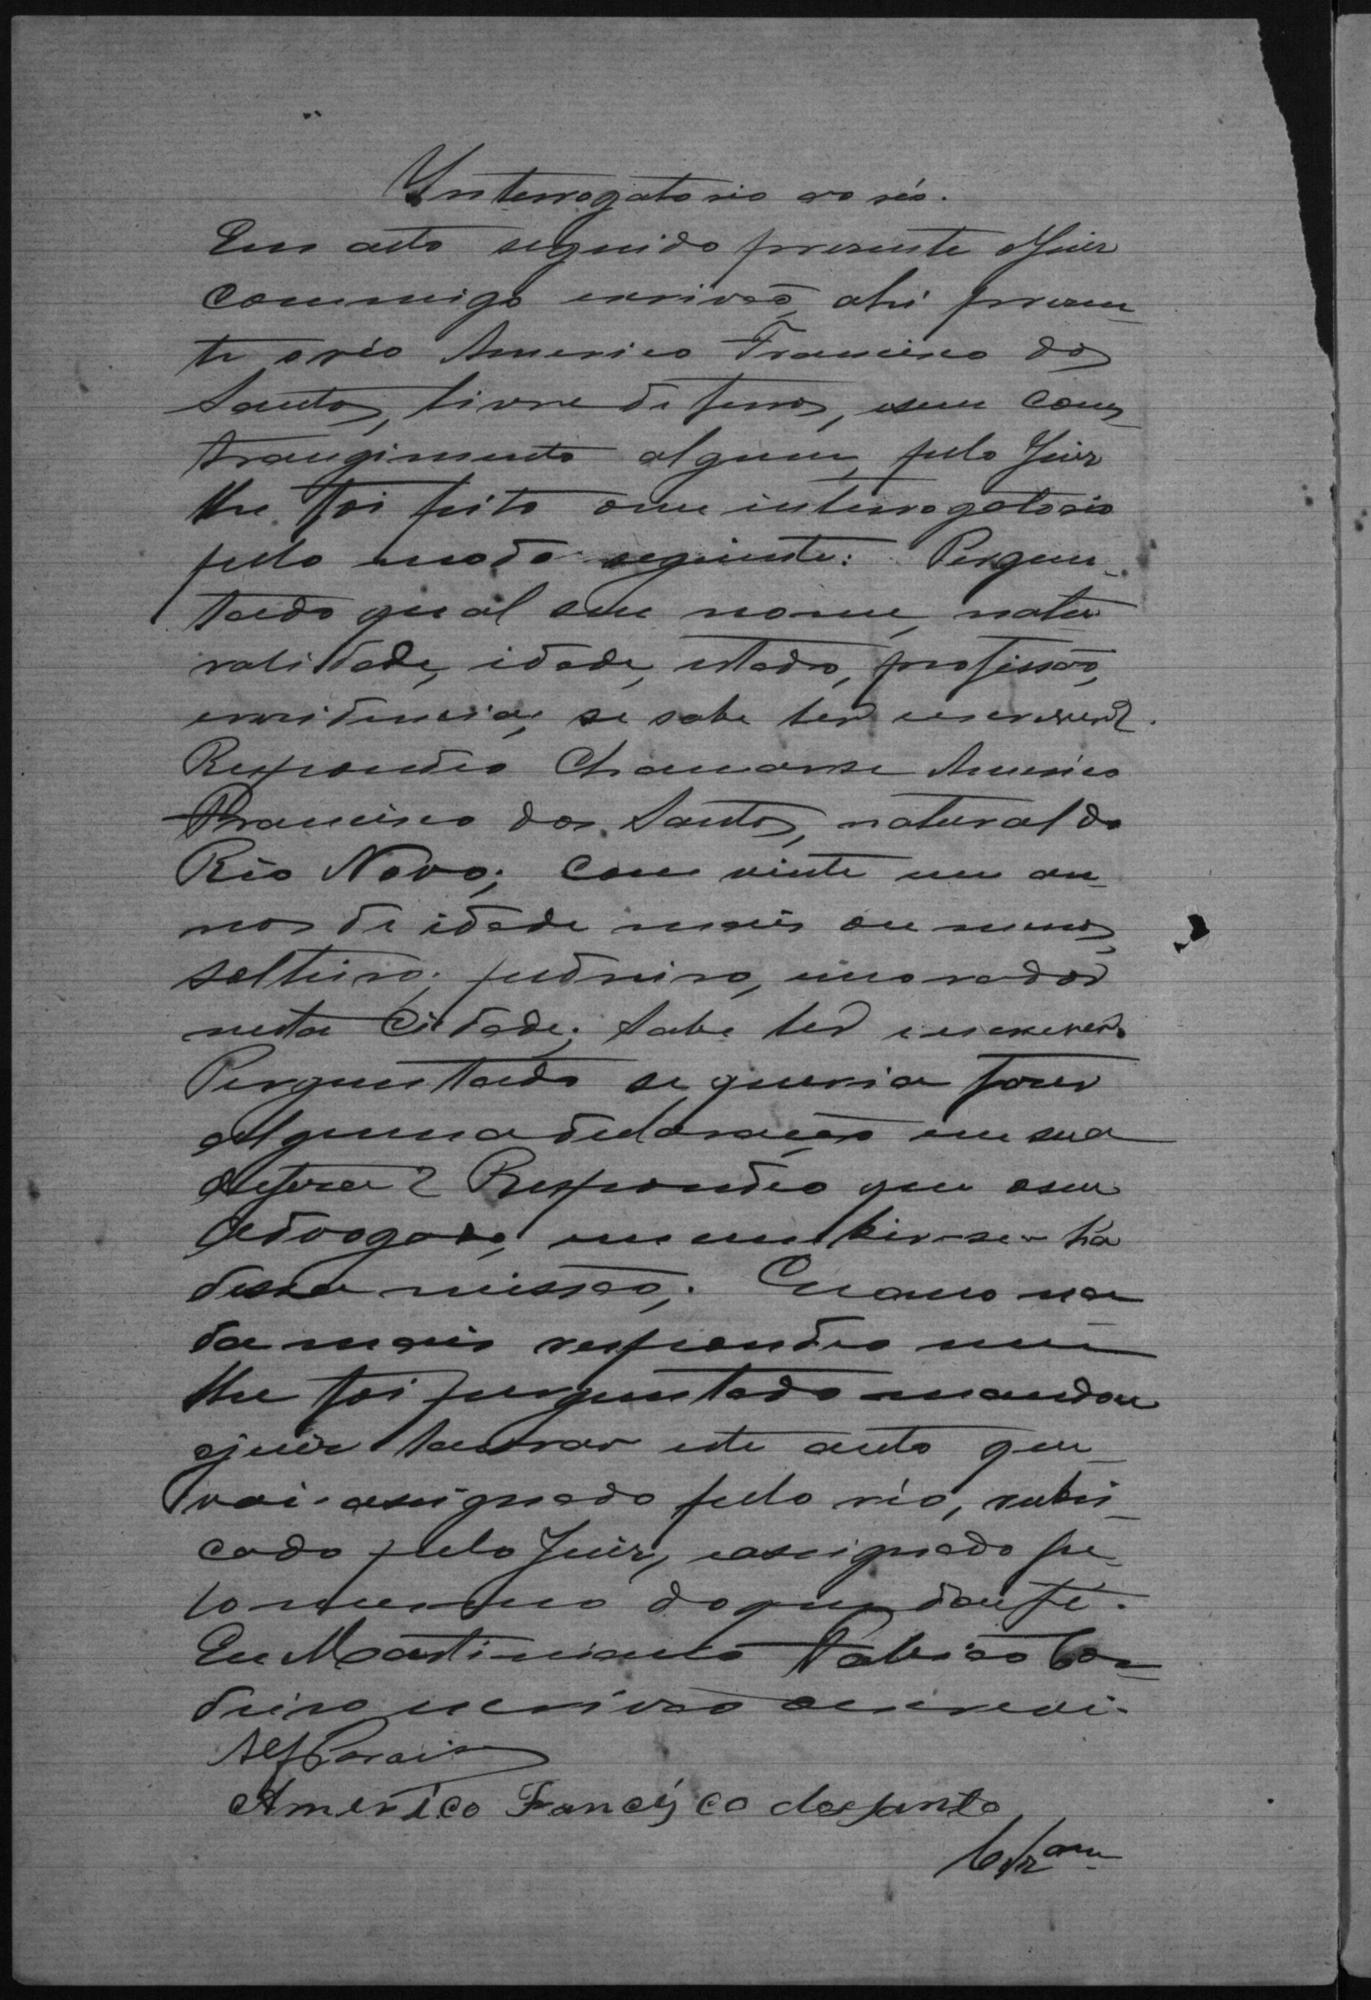 Interrogatorio ao réo.
Em acto seguido presente o Juiz
commigo escrivão, ahi presen-
te o réo Americo Francisco dos
Santos, livre de ferros, e sem cons-
trangimento algum, pelo Juiz
lhe foi feito o interrogatorio
pelo modo seguinte: Pergun-
tado qual seu nome, natu-
ralidade, idade, estado, profissão,
e residencia, se sabe ler e escrever?
Respondeo chamar-se Americo
Francisco dos Santos, natural do
Rio Novo; com vinte um an-
nos de idade mais ou menos,
solteiro; pedreiro, morador
nesta Cidade; sabe ler e escrever.
Perguntado se queria fazer
alguma declaração em sua
defeza? Respondeo que o seu
advogado, incumbir-se-ha
dessa missão; E como na-
da mais respondeo nem
lhe foi perguntado mandou
o juiz lavrar este auto que
vai assignado pelo réo, rubri-
cado pelo Juiz, e assignado pe-
lo mesmo do que dou fé.
Eu Martiniano Cor-
deiro escrivão o escrevi.
Americo Francisco dos santo